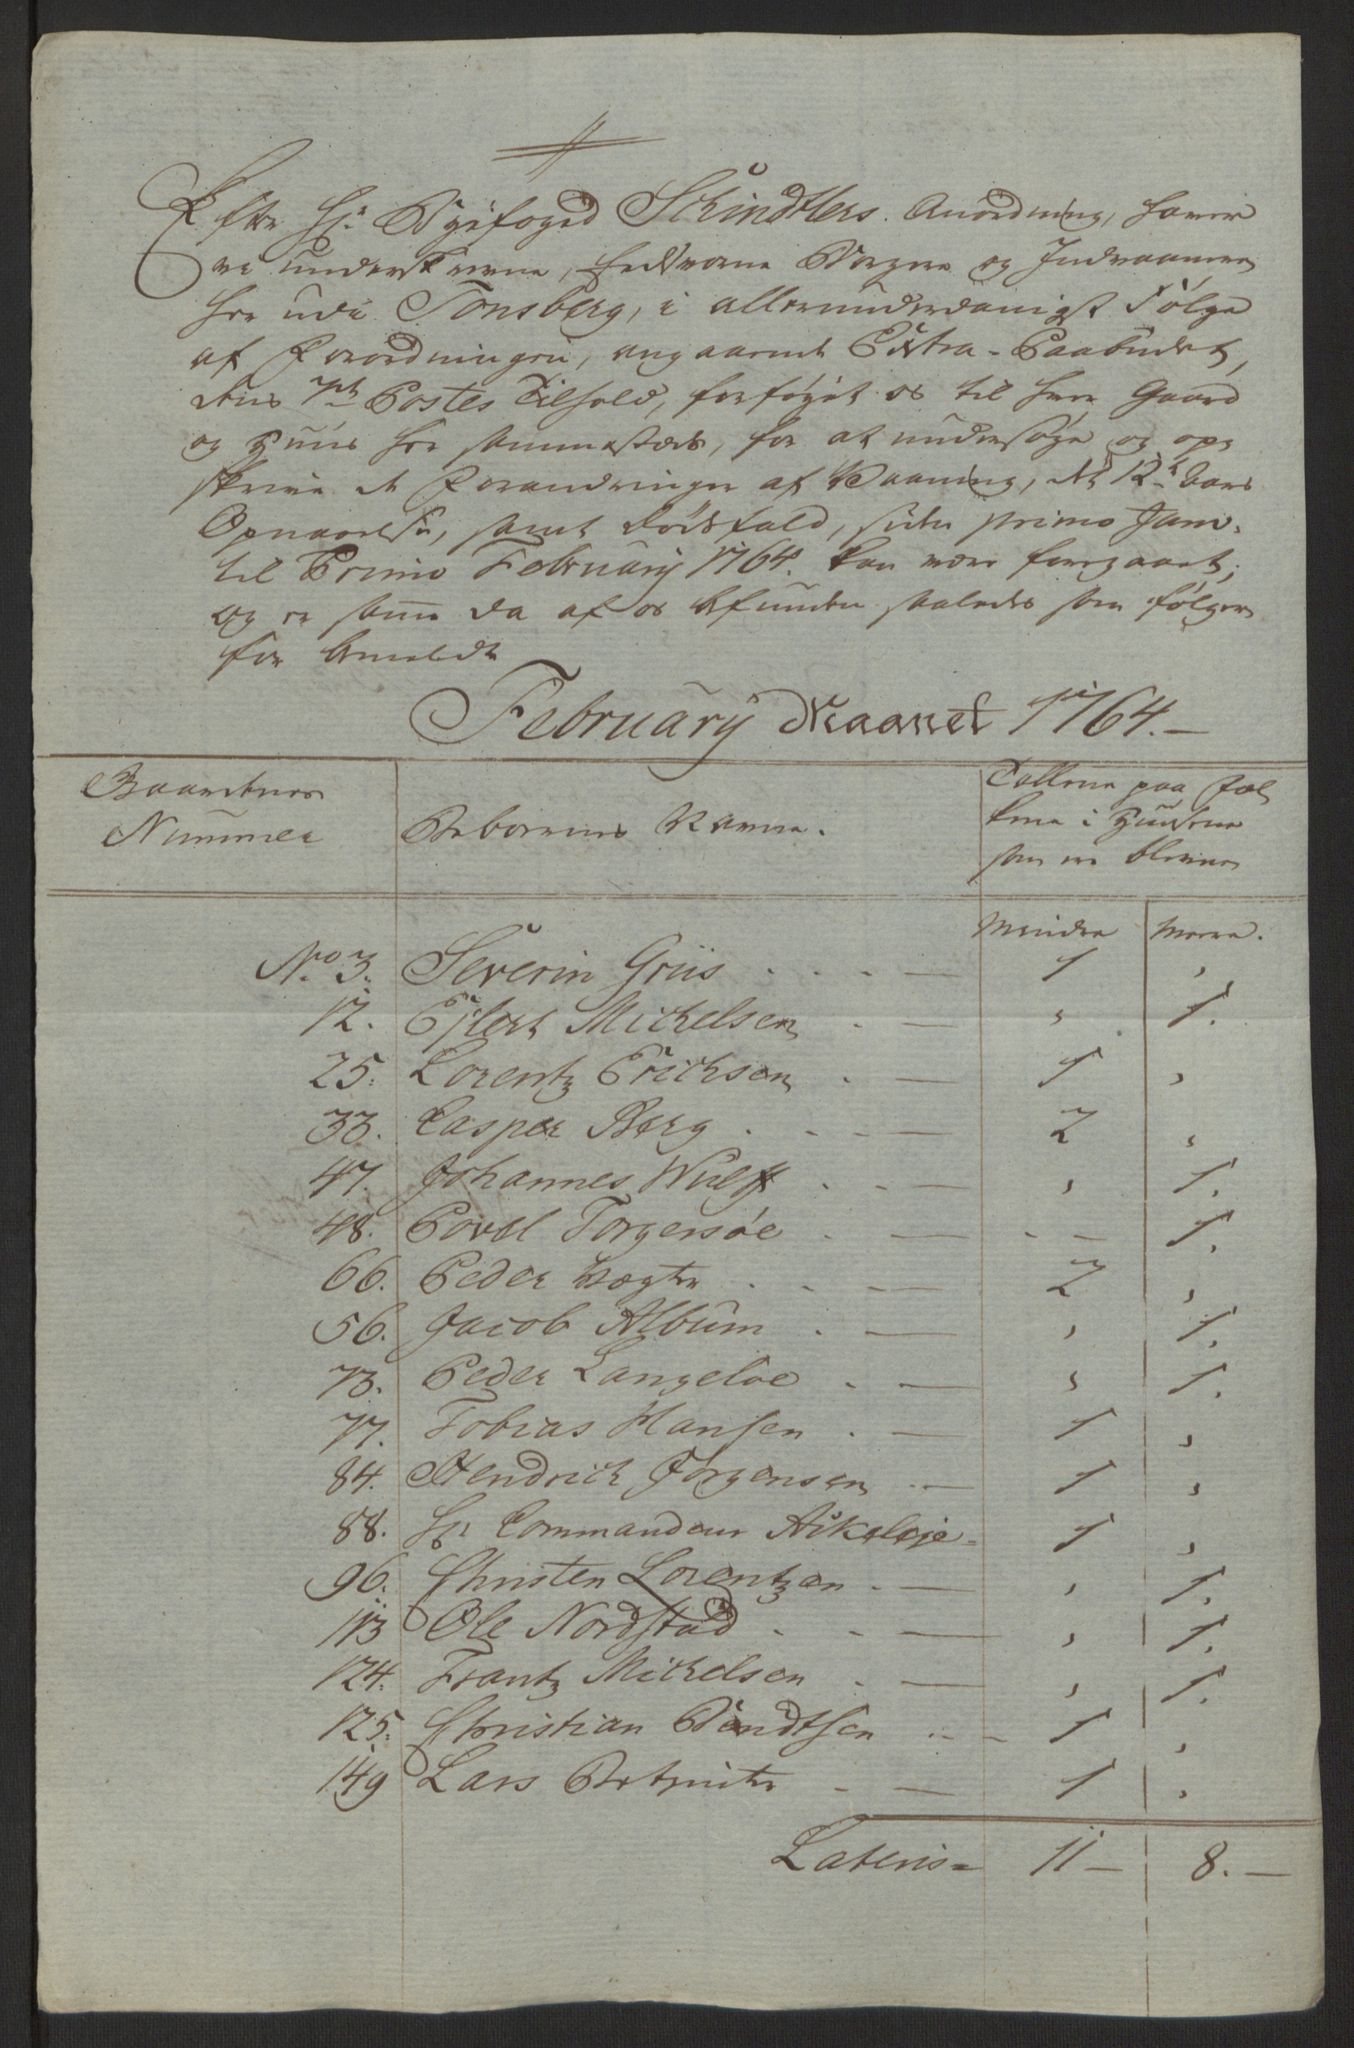 Efter Hr. Byefoged Schindtlers Anordning, haver
vi underskrevne, Eedsvorne Borgere og Indvaanere
her udi Tonsberg, i allerunderdanigst Følge
af Forordningen, angaaende Extra-Paabudet,
dens 7de Postes Tilhold, forføyet os til hver Gaard
og Huus her sammestæds, for at undersøge og op-
skrive de Forandringer af Vaaning, det 12te Aars
Opnaaelse, samt Dødsfald, siden primo Janv.
til Primo February 1764. kan være foregaaet;
og er samme da af os befunden saaledes som følger
for bemeldte
February Maanet 1764.—
Gaardenes
Nummer
Beboernes Navne.
Tallene paa Fol-
kene i Huusene
som ere blevne
Mindre Meere.
No. 3. Severin Griis . . . — 1 ,
12. Ejlert Michelsen . — , 1.
25. Lorentz Erichsen . — 1 ,
33. Casper Berg . . . — 2 ,
47. Johannes Wulff . . — , 1.
48. Povel Torgersøe . — . — 1.
66. Peder Vogter . . . — 2 ,
56. Jacob Album . — , 1.
73. Peder Langeloe . — , 1.
77. Tobias Hansen . — 1 ,
84. Hendrich Jørgensen . — 1 ,
88. Hr. Commandeur Akeleje - 1 ,
96. Christen Lorentzen . — , 1.
113 Ole Nordstad . . — , 1.
124. Frantz Michelsen . — , 1.
125. Christian Bendtsen . . — 1 ,
149 Lars . — 1 ,
Lateris = 11 — 8. —